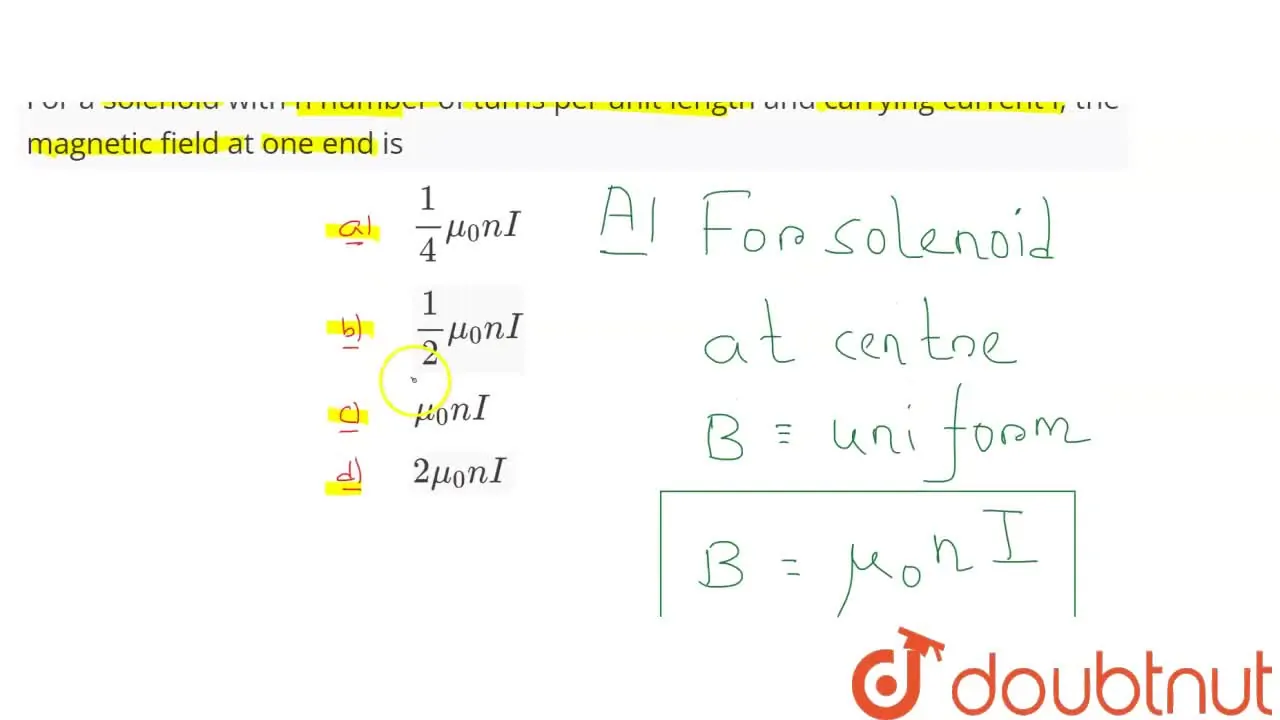 For a solenoid with n number of turns per unit length and carrying current I, the
magnetic field at one end is
a) 1/4 μ₀nI
b) 1/2 μ₀nI
c) μ₀nI
d) 2μ₀nI
A) For solenoid
at centre
B = uniform
B = μ₀nI
doubtnut